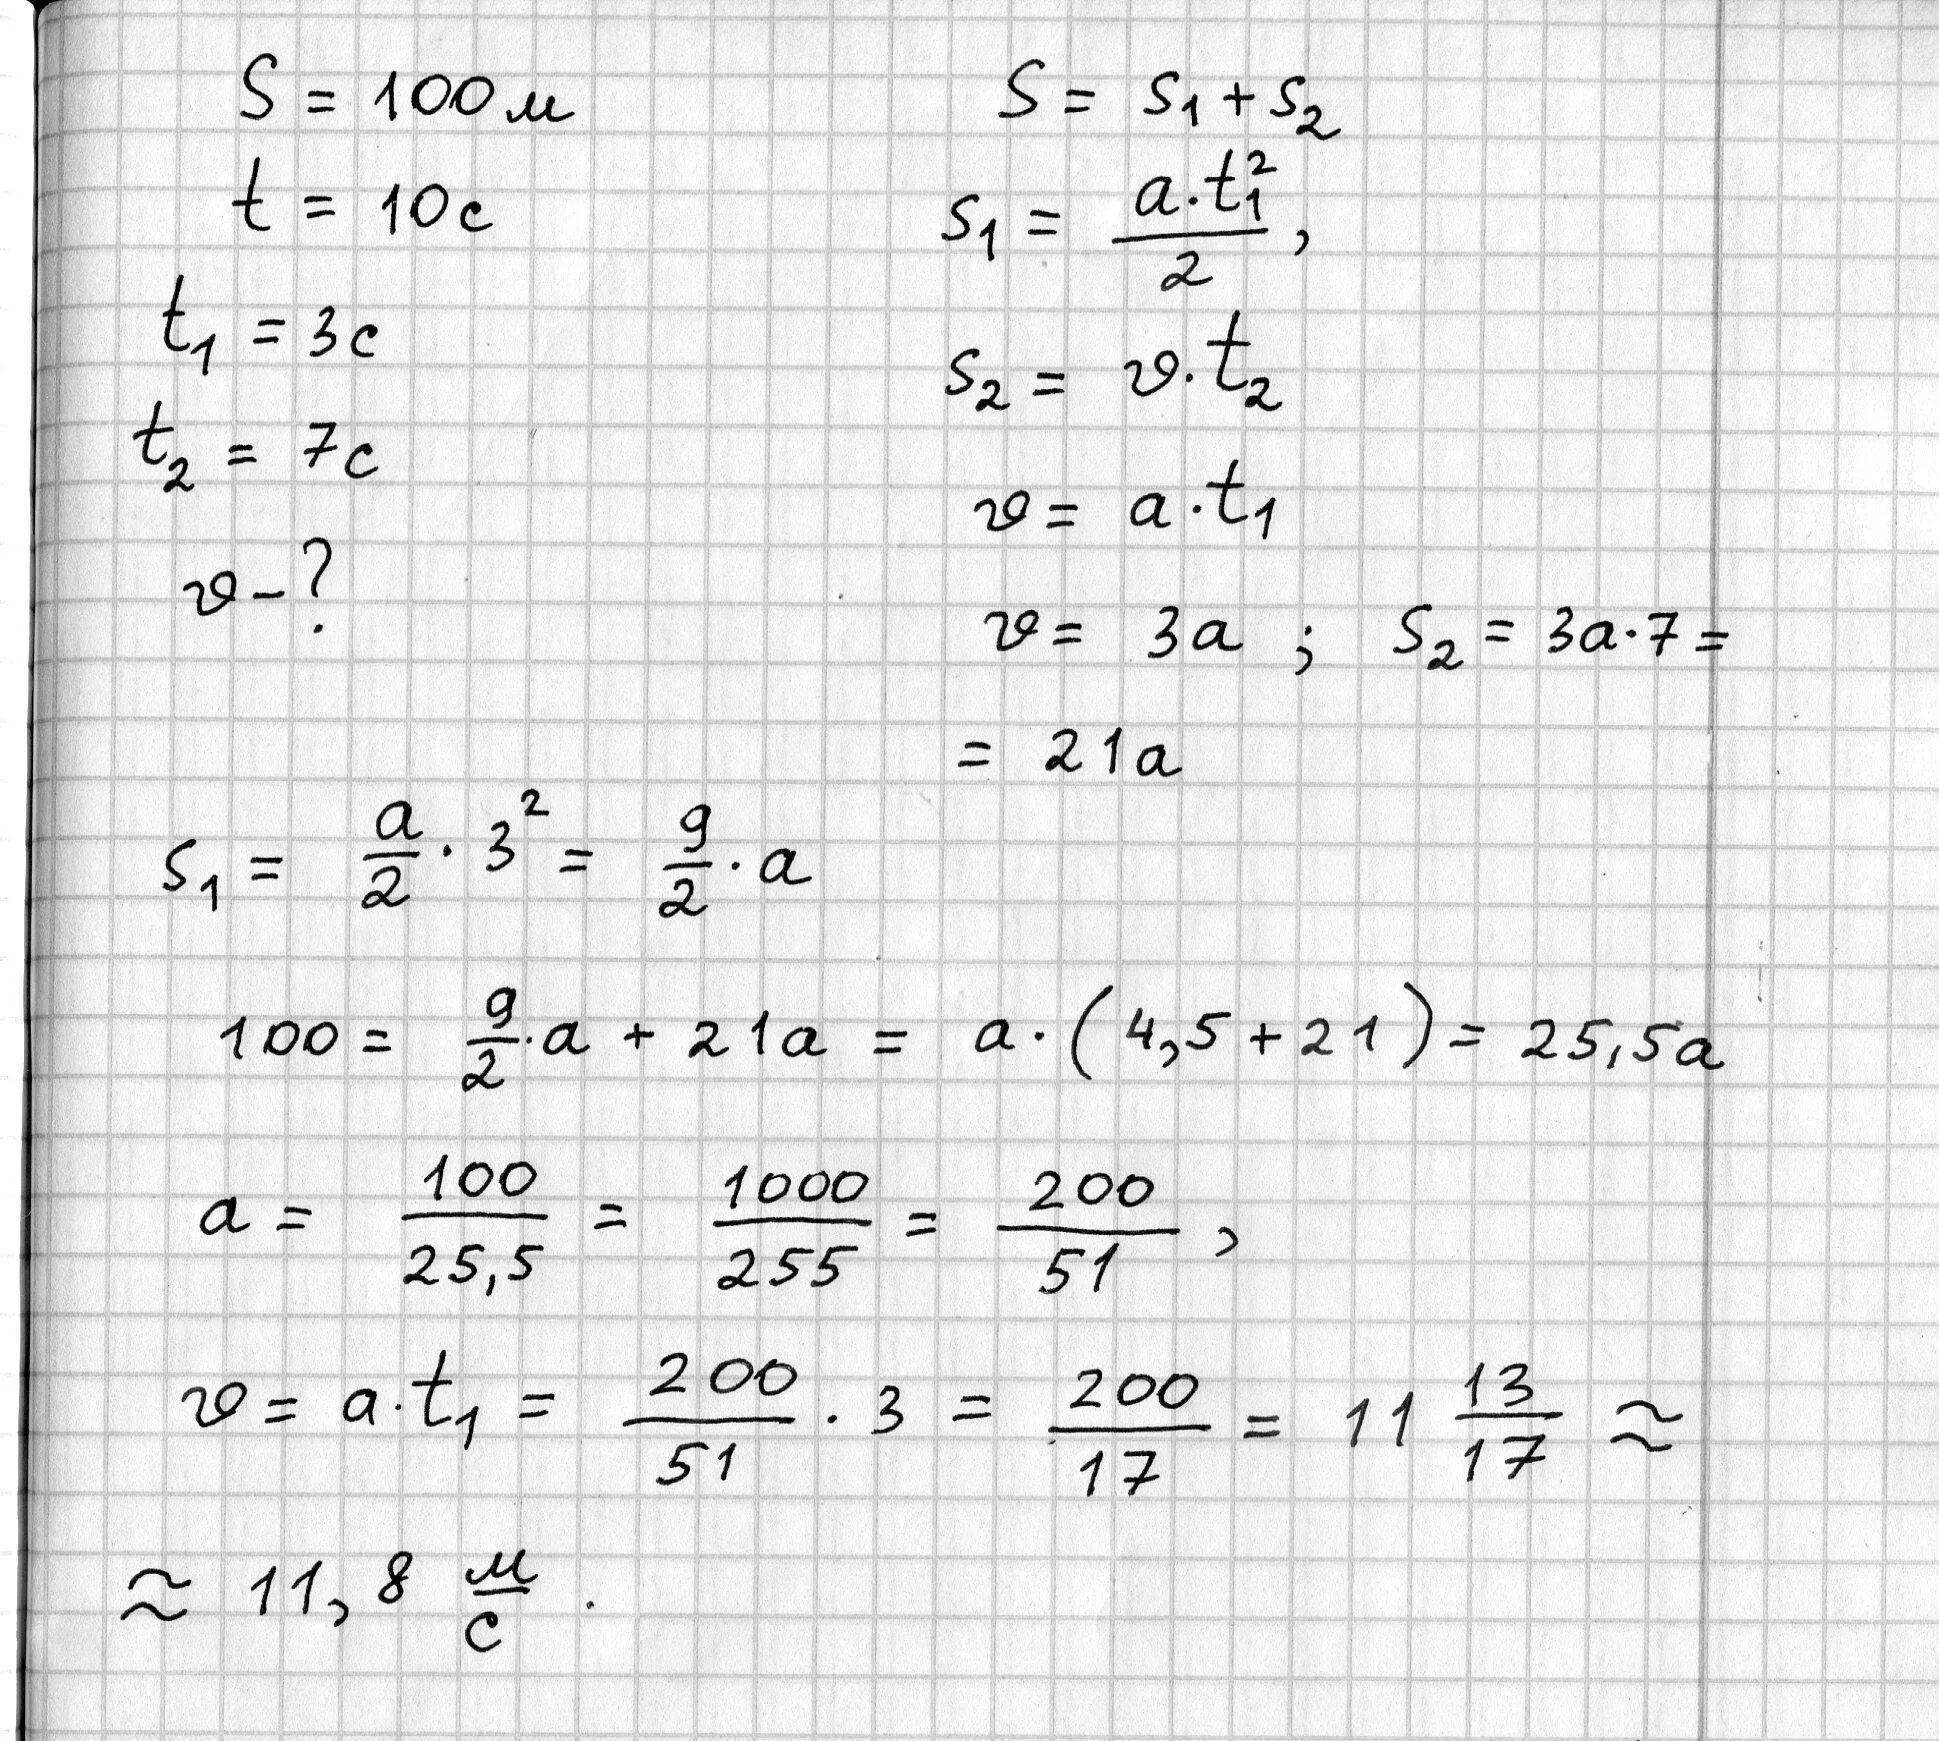 S = 100 м
t = 10 с
t₁ = 3 с
t₂ = 7 с
v – ?
S = s₁ + s₂
s₁ = a·t₁²/2 ,
s₂ = v·t₂
v = a·t₁
v = 3a ; s₂ = 3a·7 =
= 21a
s₁ = a/2 · 3² = 9/2 · a
100 = 9/2 · a + 21a = a·(4,5 + 21) = 25,5a
a = 100/25,5 = 1000/255 = 200/51 ,
v = a·t₁ = 200/51 · 3 = 200/17 = 11 13/17 ≈
≈ 11,8 м/с .